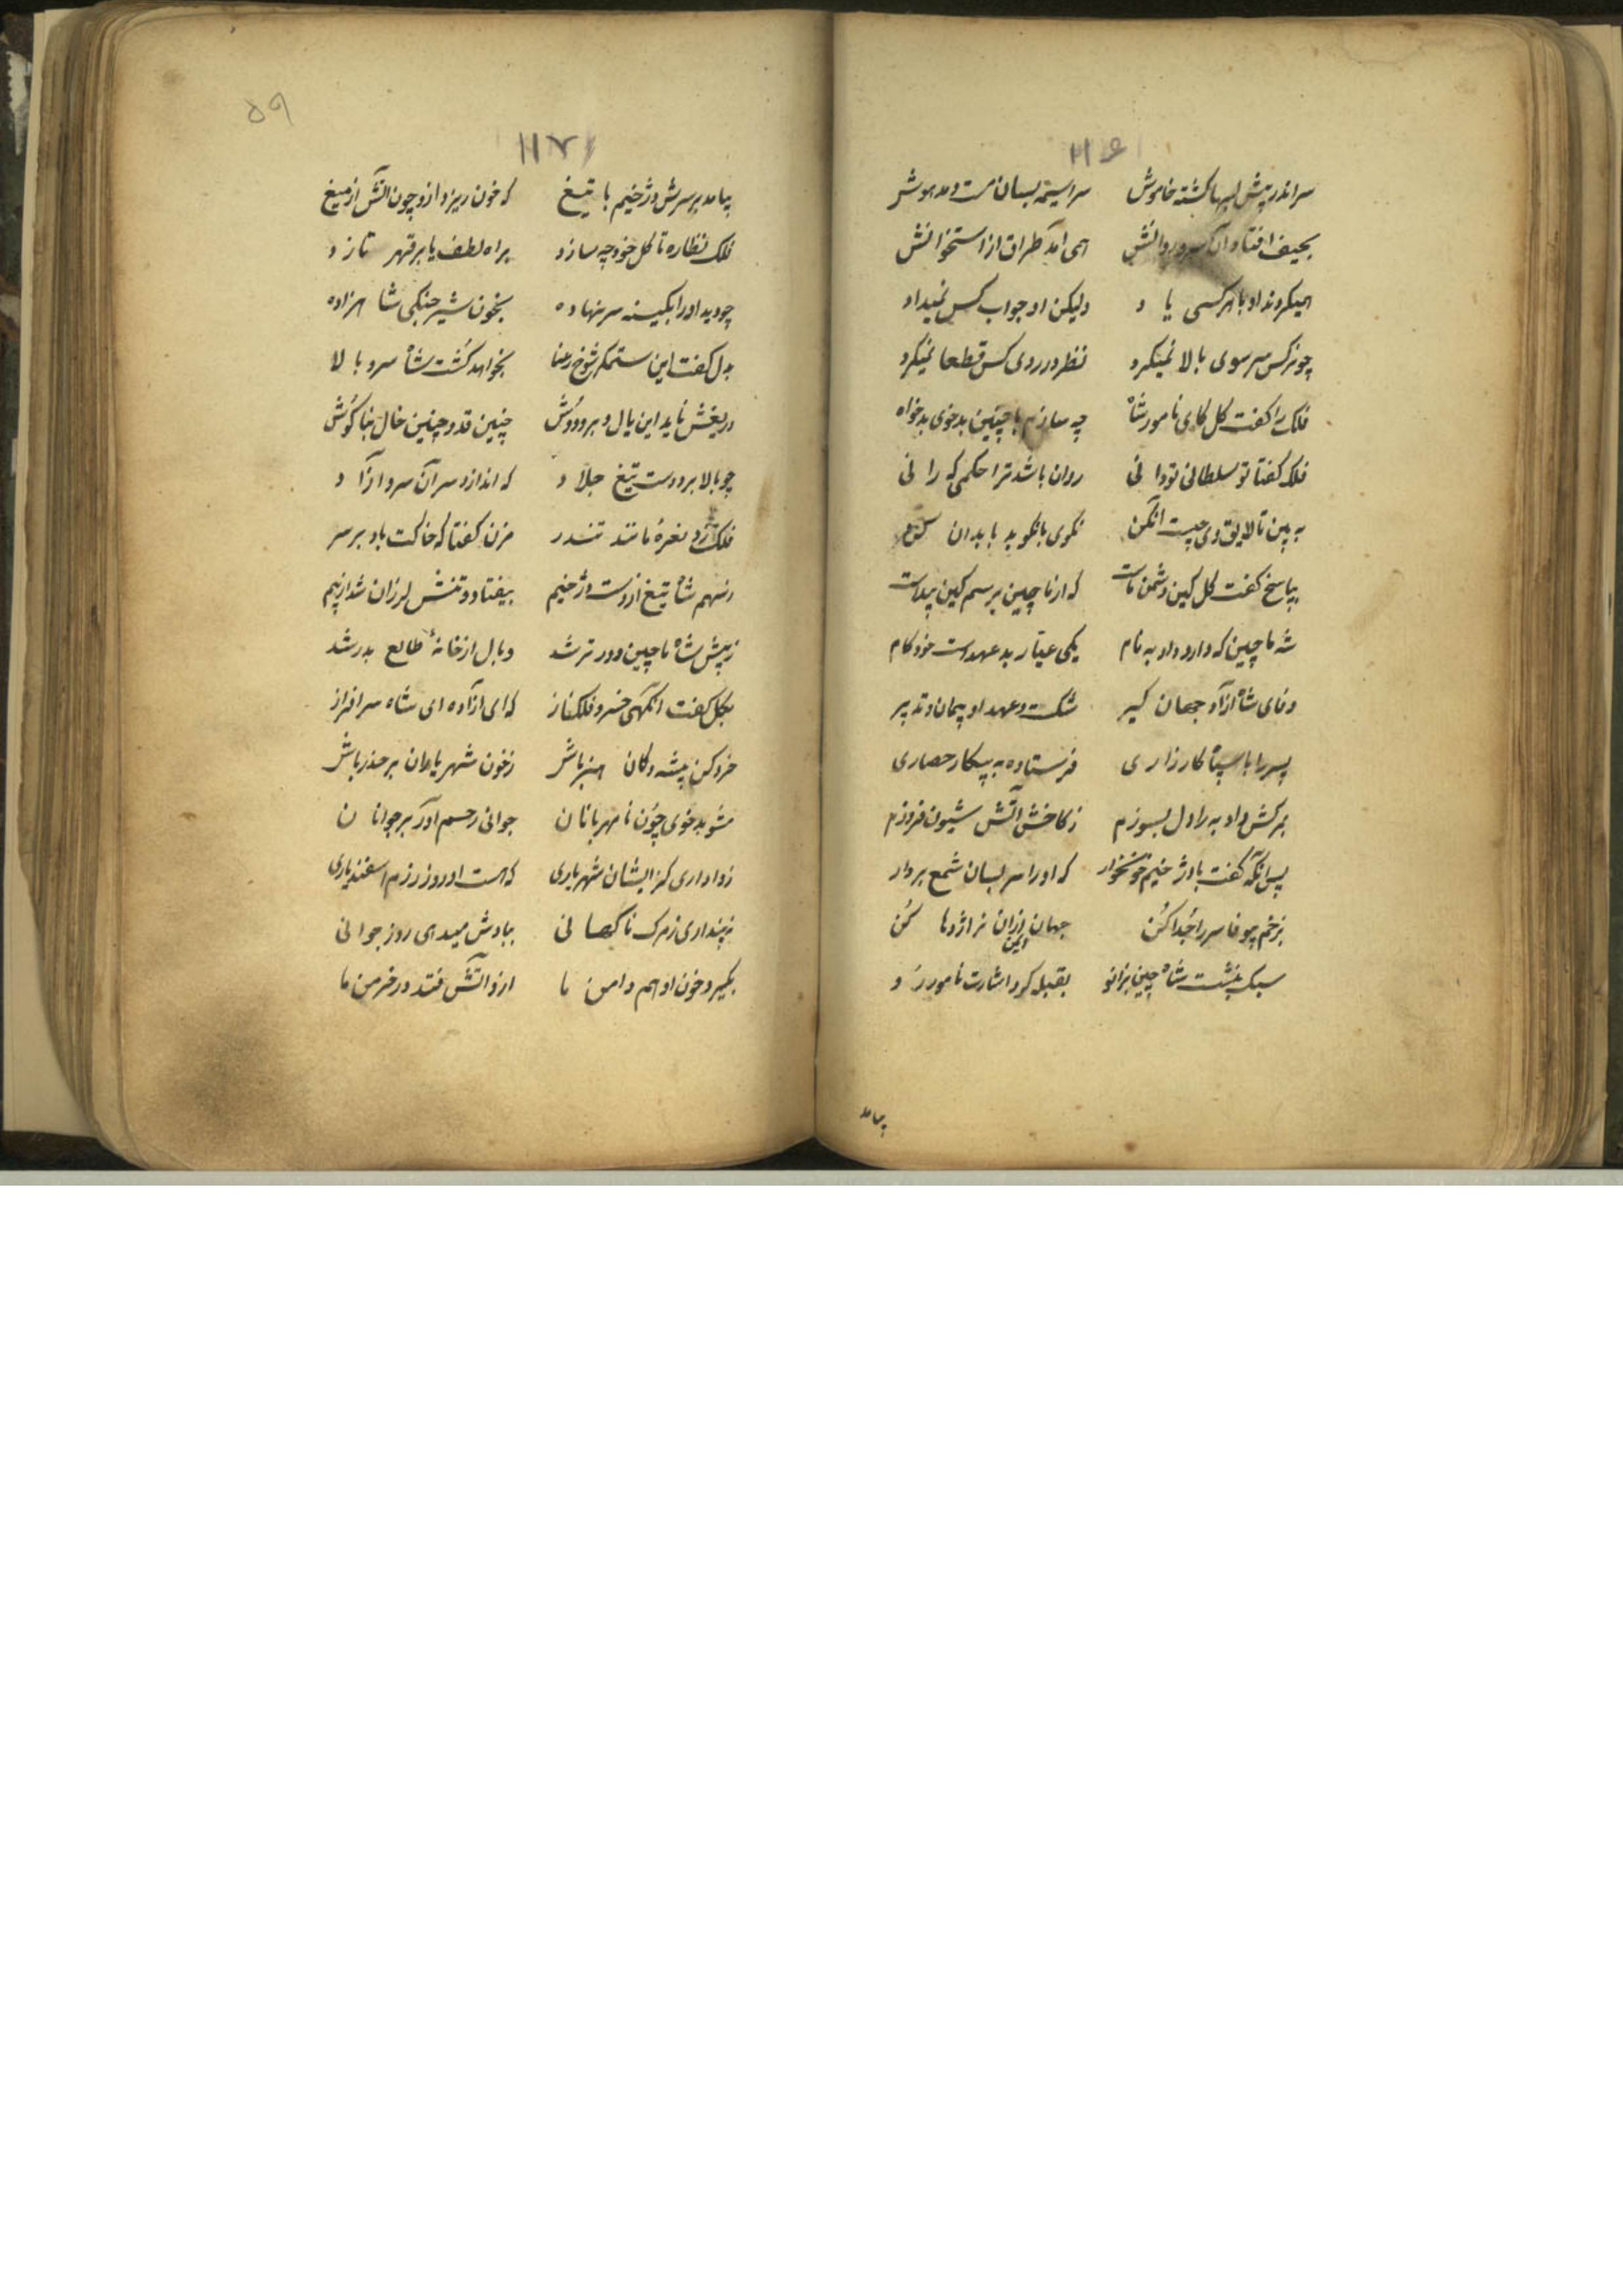 ۱۱۶
سر اندر پیش لبها کشته خاموش سراسیمه بسان مست و مدهوش
بحیف افتاد آن سرو روانش همی آمد طراق از استخوانش
همیکردند او با هرکسی یاد ولیکن او جواب کس نمیداد
چو نرکس سر سوی بالا نمیکرد نظر در روی کس قطعا نمیکرد
فلک را کفت کل کای نامور شاه چه سازم با چنین بدخوی بدخواه
فلک کفتا تو سلطانی تو دانی روان باشد ترا حکمی که رانی
به بین تا لایق وی چیست آن کن نکوی با نکو بد با بدان کن
بپاسخ کفت کل کین دشمن ماست که از ماچین برسم کین
شه ماچین که دارد داد به نام یکی عیار بد عهد است خودکام
وفای شاه آزاد جهان کیر شکست و عهد او پیمان و تدبیر
پسر را با سپاه کارزاری فرستاده به پیکار حصاری
بمرکش داد به را دل بسوزم ز کاخش آتش شیون فروزم
پس آنکه کفت با دژخیم خونخوار که او را سر بسان شمع بردار
بزخم سر را جدا کن جهان ایمن ازان نر اژدها کن
سبک بنشست شاه چین بزانو بقبله کرد اشارت نامور زو
بیامد
۵۹
۱۱۷
بیامد بر سرش دژخیم با تیغ که خون ریزد ازو چون آتش از میغ
فلک نظاره تا کل خود چه سازد براه لطف یا بر قهر تازد
چو دید او را بکینه سر نهاده بخون شیر جنکی شاهزاده
بدل کفت این ستمکر شوخ رعنا بخواهد کشت شاه سرو بالا
دریغش ناید این یال و بر و دوش چنین قد و چنین خال بناکوش
چو بالا برد دست تیغ جلاد که اندازد سر آن سرو آزاد
فلک زد نعرهٔ مانند تندر مزن کفتا که خاکت باد بر سر
ز سهم شاه تیغ از دست دژخیم بیفتاد و تنش لرزان شد از بیم
ز پیش شاه ماچین دورتر شد وبال از خانهٔ طالع بدر شد
بکل کفت انکهی خسرو فلکناز که ای آزاده ای شاه سرافراز
خرد کن پیشه و کان هنر باش ز خون شهریاران بر حذر باش
مشو بدخوی چون نامهربانان جوانی رحم آور بر جوانان
روا داری کز ایشان شهریاری که هست او روز رزم اسفندیاری
نپنداری ز مرک ناکهانی ببادش میدهی روز جوانی
بکیرد خون او هم دامن ما ازو آتش فتد در خرمن ما